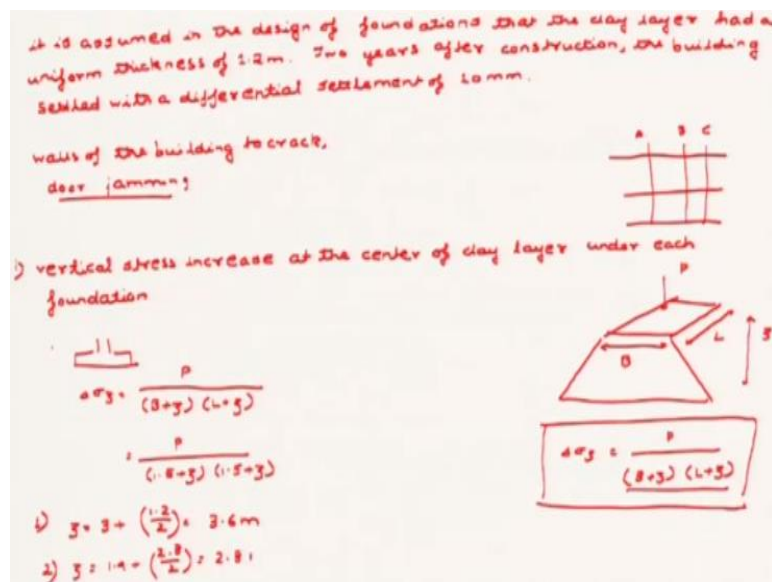 it is assumed in the design of foundations that the clay layer had a
uniform thickness of 1.2m. Two years after construction, the building
settled with a differential settlement of 10mm.
walls of the building to crack,
door jamming
A B C
i) vertical stress increase at the center of clay layer under each
foundation
P
B
L
z
Δσz = P / (B+z) (L+z)
= P / (1.5+z) (1.5+z)
Δσz = P / (B+z) (L+z)
1) z = 3 + (1.2/2) = 3.6m
2) z = 1.4 + (2.8/2) = 2.81